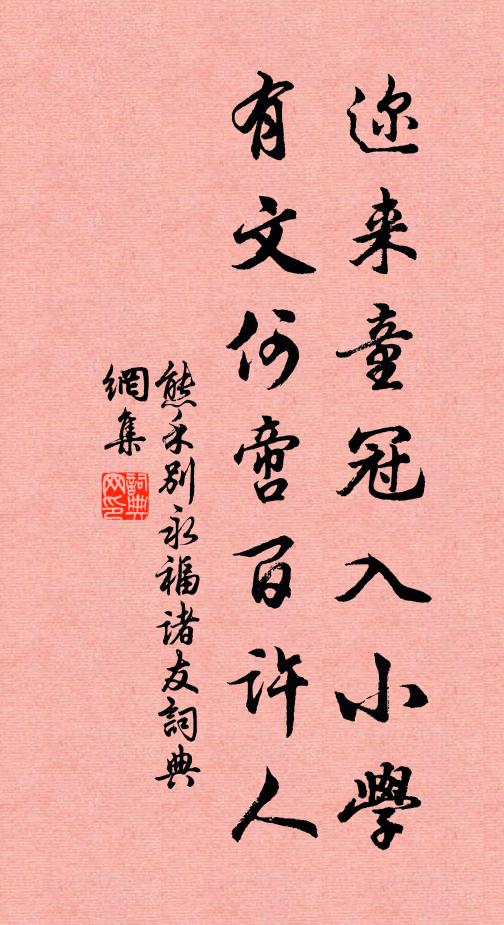 迩来童冠入小学
有文何啻百许人
熊禾别永福诸友词典
網集
詞典
网印